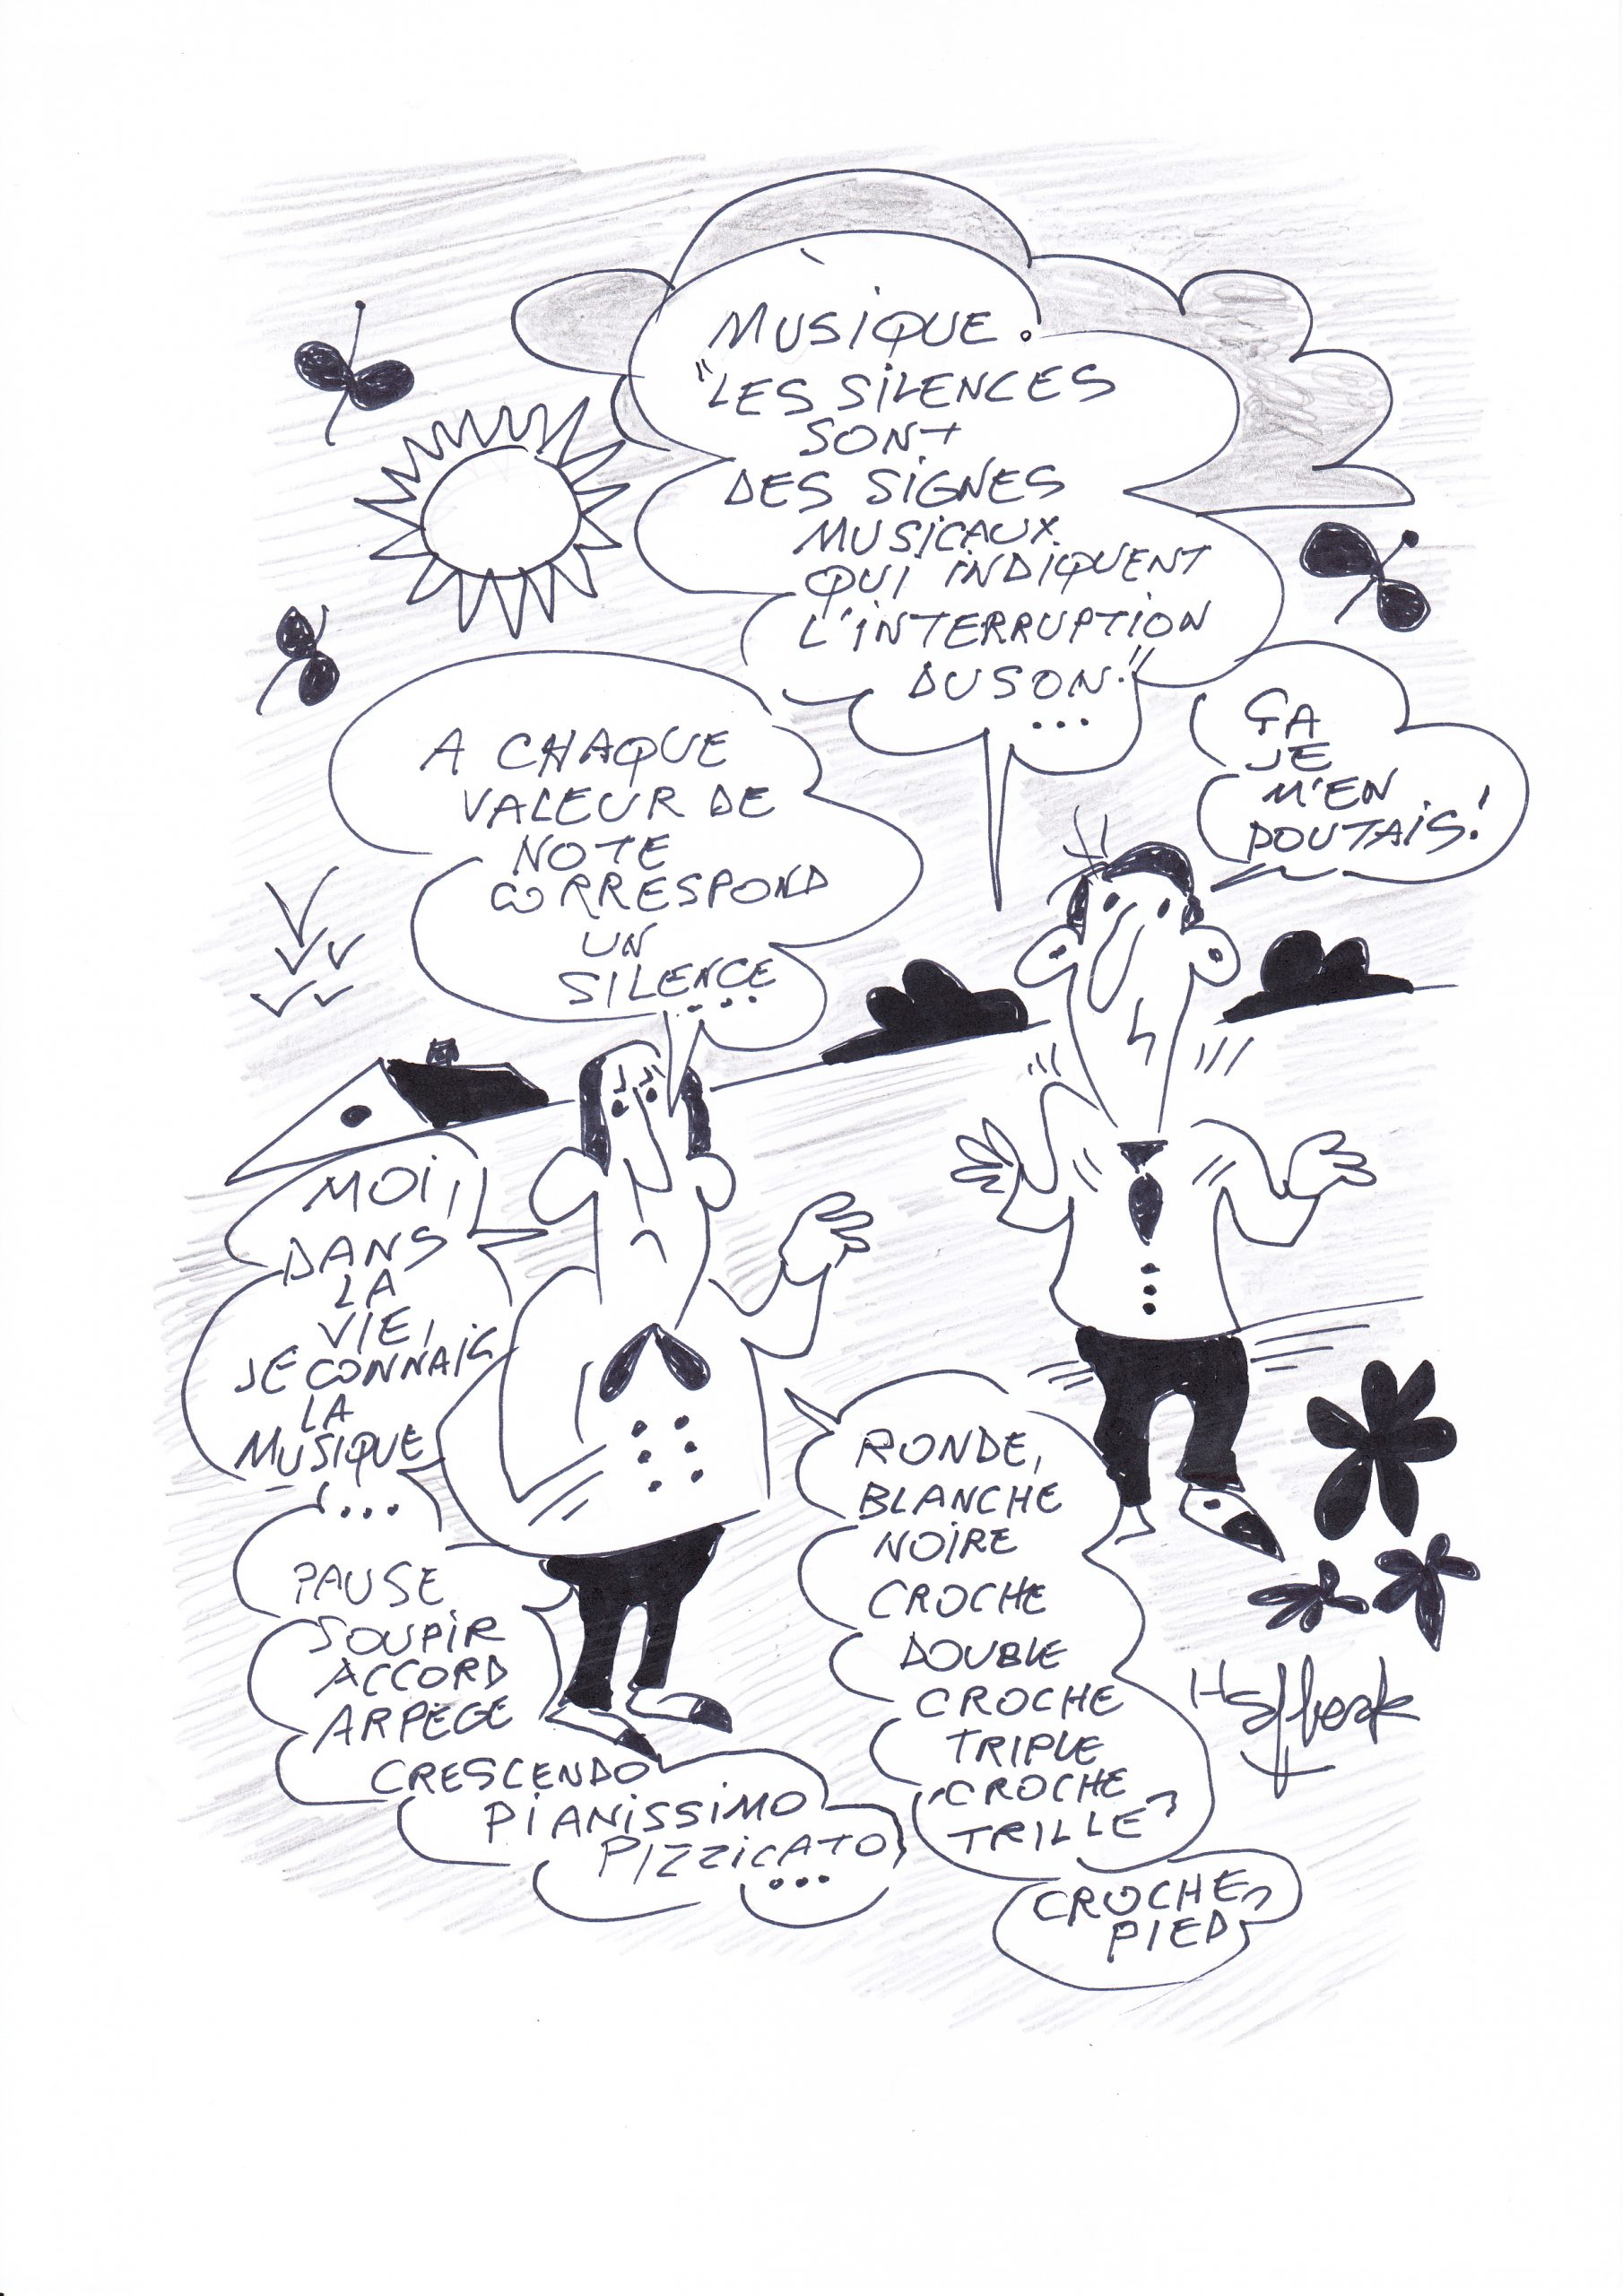 MUSIQUE.
"LES SILENCES
SONT
DES SIGNES
MUSICAUX
QUI INDIQUENT
L'INTERRUPTION
DU SON."
...
ÇA
JE
M'EN
DOUTAIS!
A CHAQUE
VALEUR DE
NOTE
CORRESPOND
UN
SILENCE
...
MOI,
DANS
LA
VIE,
JE CONNAIS
LA
MUSIQUE
...
PAUSE
SOUPIR
ACCORD
ARPEGE
CRESCENDO
PIANISSIMO
PIZZICATO
...
RONDE,
BLANCHE
NOIRE
CROCHE
DOUBLE
CROCHE
TRIPLE
CROCHE
TRILLE
CROCHE
PIED